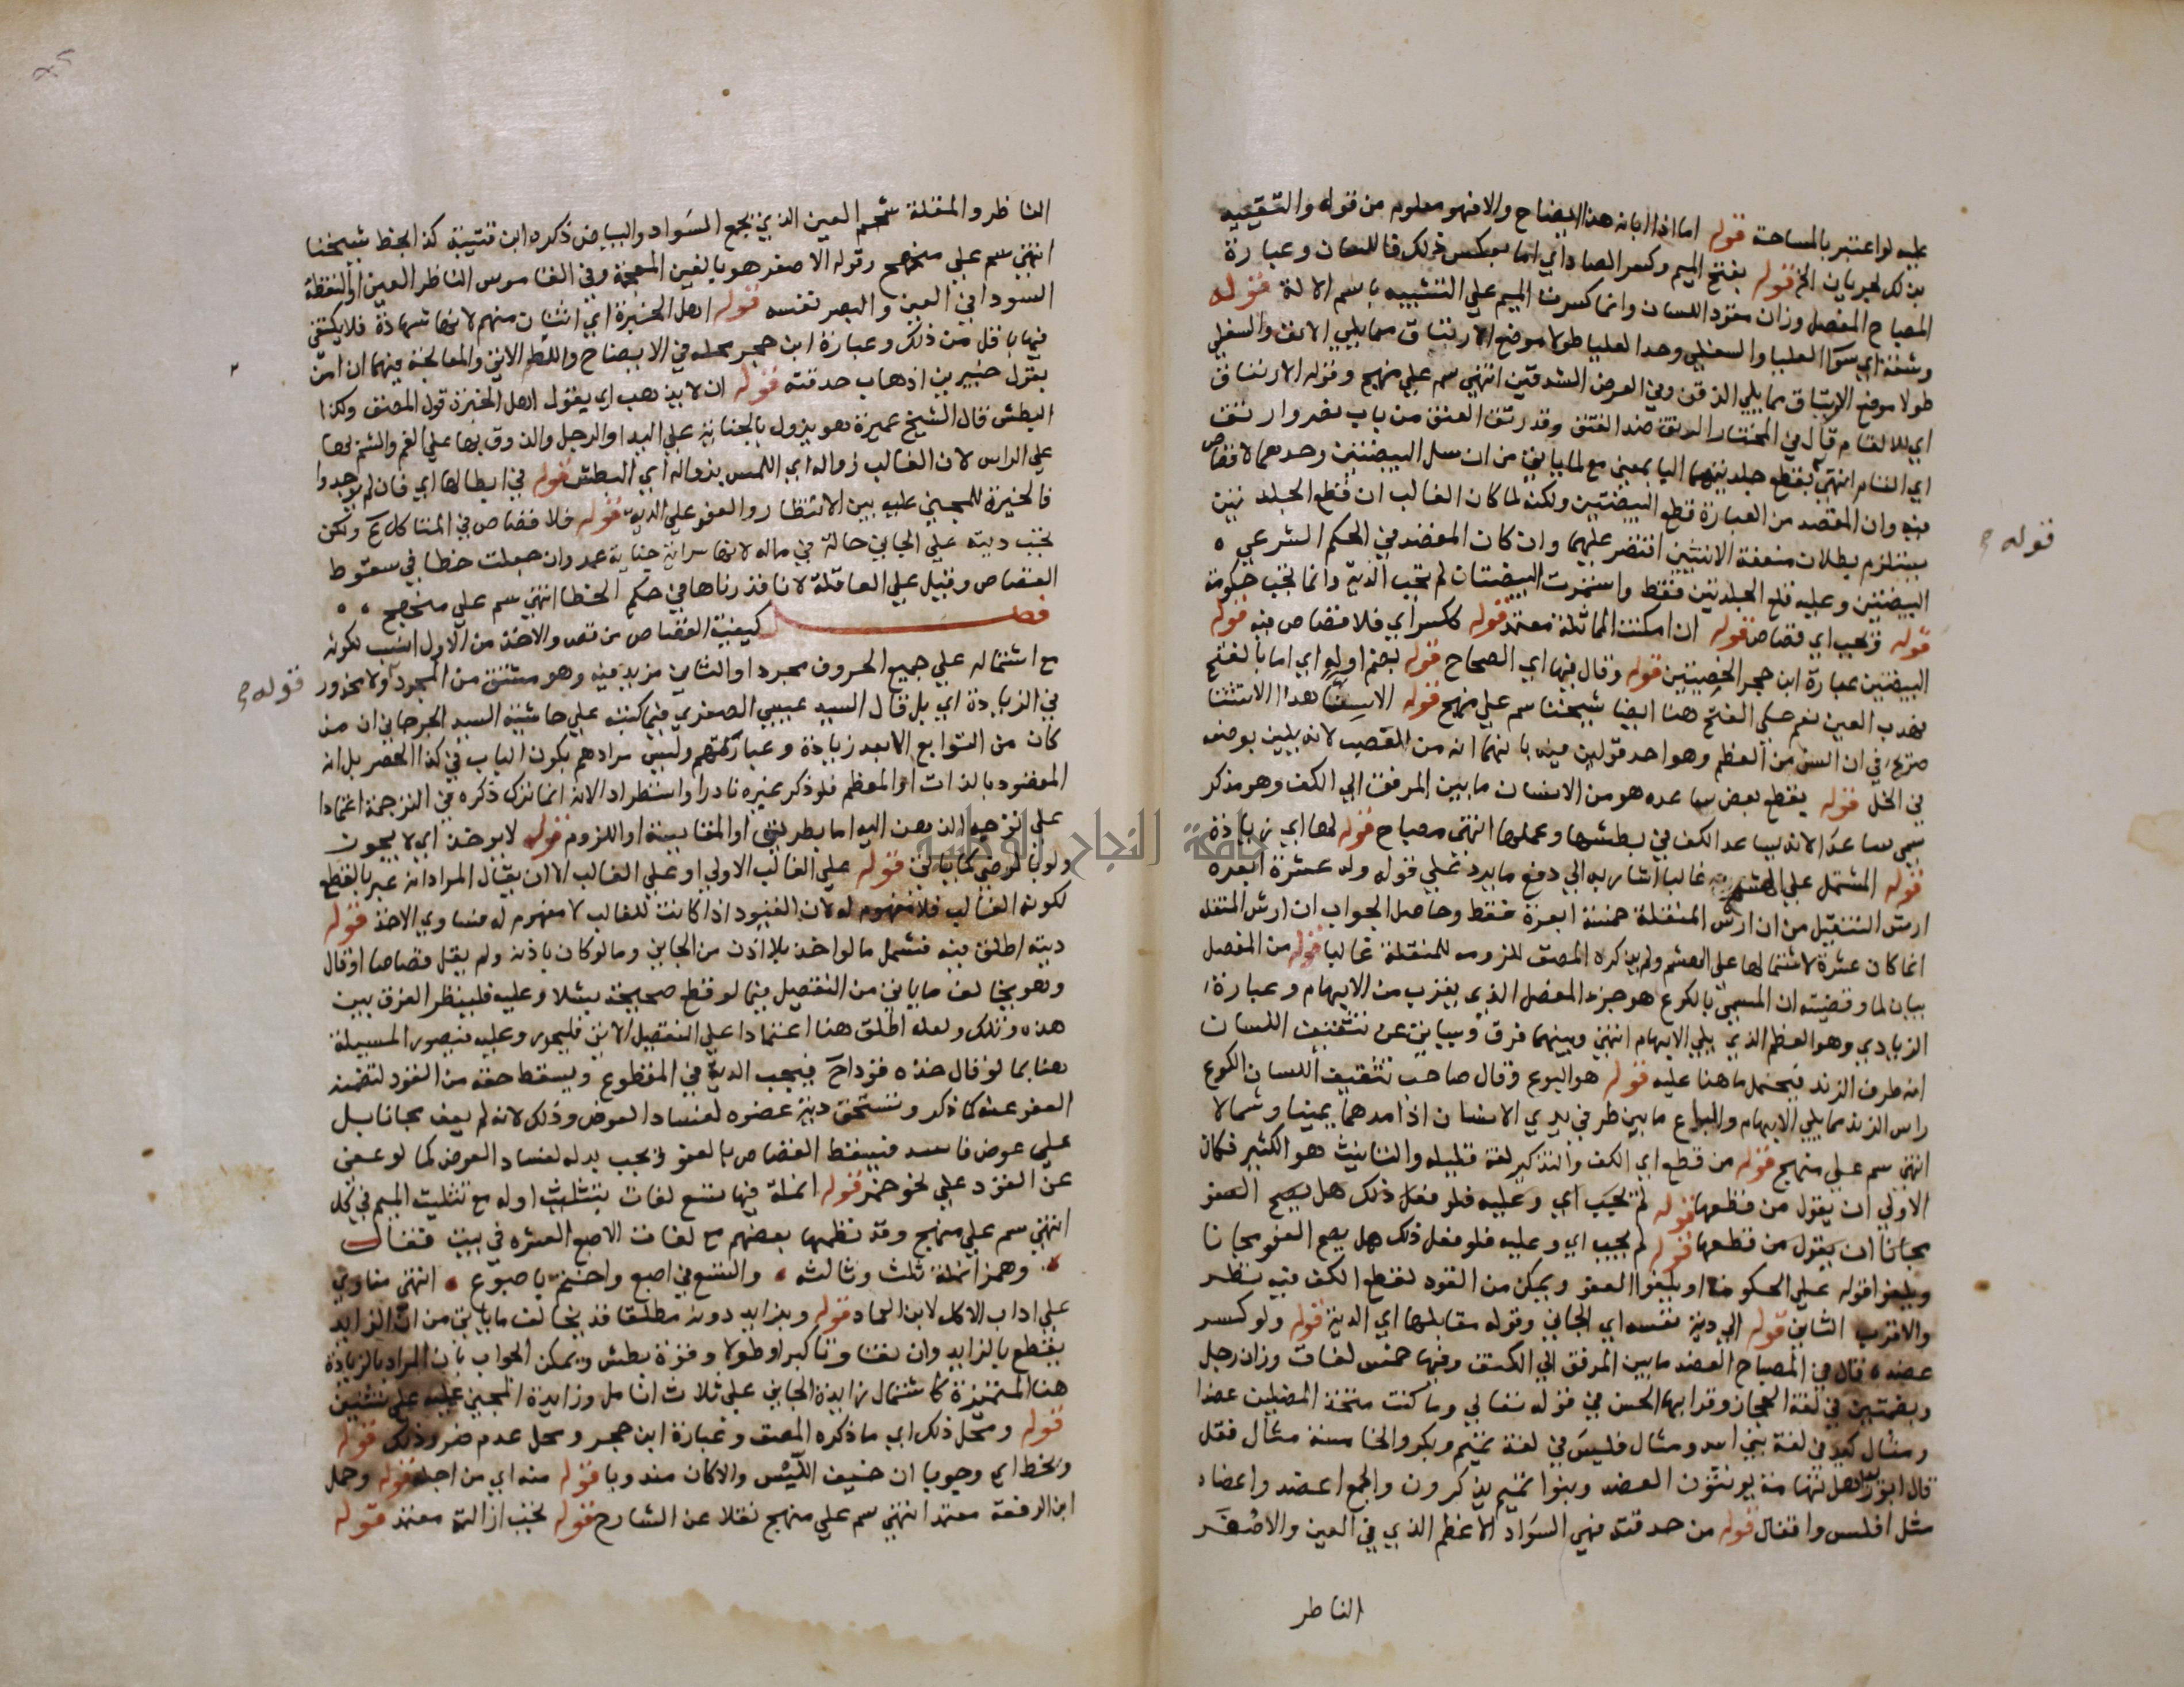 عليه لو اعتبر بالمساحة قوله اما اذا ابانه هذا ايضاح والا فهو معلوم من قوله والتقييد
بذلك لجريان الخ قوله بفتح الميم وكسر الصاد اي اما بعكس ذلك فاللسان وعبارة
المصباح المفصل وزان مقود اللسان وانما كسرت الميم علي التشبيه باسم الالة قوله
وشفة اي سوا العليا والسفلي وحد العليا طولا موضع الارتتاق مما يلي الانف والسفلي
طولا موضع الارتتاق مما يلي الذقن وفي العرض الشدقين انتهي سم علي منهج وقوله الارتتاق
اي للالتئام قال في المختار الرتق ضد الفتق وقد رتق الفتق من باب نصر وارتتق
اي التئام انتهي بقطع جلدتيهما البا بمعني مع لما ياتي من ان سل البيضتين وحدهما لا قصاص
فيه وان المقصد من العبارة قطع البيضتين ولكنه لما كان الغالب ان قطع الجلدتين
يستلزم بطلان منفعة الانثيين اقتصر عليهما وان كان المقصد في الحكم الشرعي
البيضتين وعليه فلو الجلدتين فقط واستمرت البيضتان لم تجب الدية وانما تجب حكومة
قوله ويجب اي قصاص قوله ان امكنت المماثلة معتمد قوله ككسر اي فلا قصاص فيه قوله
البيضتين عبارة ابن حجر الخصيتين قوله وقال فيها اي الصحاح قوله بضم اوله اي اما بالفتح
بغرب العين نعم حكي الفتح هنا ايضا شيخنا سم علي منهج قوله الا سنا هذا الاستثنا
صريح في ان السن من العظم وهو احد قولين فيه ثانيهما انه من العصب لانه يلين بوضعه
في الخل قوله يقطع بعض ساعده هو من الانسان ما بين المرفق الي الكف وهو مذكر
سمي ساعدا لانه يساعد الكف في بطشها وعملها انتهي مصباح قوله لها اي زيادة
قوله المشتمل علي الهشم غالبا اشار به الي دفع ما يرد علي قوله وله عشرة ابعرة
ارش التنقيل من ان ارش المنقلة خمسة ابعرة فقط وحاصل الجواب ان ارش المنقلة
انما كان عشرة لاشتمالها علي الهشم ولم يذكره المصنف للزومه للمنقلة غالبا قوله من المفصل
بيان لما وقضيته ان المسمي بالكوع هو جزء المفصل الذي يقرب من الابهام وعبارة
الزيادي وهو العظم الذي يلي الابهام انتهي وبينهما فرق وسياتي عن تثقيف اللسان
انه طرف الزند فيحتمل ما هنا عليه قوله هو البوع وقال صاحب تثقيف اللسان الكوع
راس الزند مما يلي الابهام والبوع ما بين طرفي يدي الانسان اذا مدهما يمينا وشمالا
انتهي سم علي منهج قوله من قطع اي الكف والتذكير لغة قليلة والتانيث هو الكثير فكان
الاولي ان يقول من قطعها قوله لم يجب اي وعليه فلو فعل ذلك هل يصح العفو
مجانا ان يقول من قطعها قوله لم يجب اي وعليه فلو فعل ذلك هل يصح العفو مجانا
ويلغوا قوله علي الحكومة او يلغوا العفو ويمكن من القود لقطع الكف فيه نظر
والاقرب الثاني قوله الي دية نفسه اي الجاني وقوله مقابلها اي الدية قوله ولو كسر
عضده قال في المصباح العضد ما بين المرفق الي الكتف وفيها خمس لغات وزان رجل
وبضمتين في لغة الحجاز وقرا بها الحسن في قوله تعالي وما كنت متخذ المضلين عضدا
ومثال كبد في لغة بني اسد ومثال فليس في لغة تميم وبكر والخامسة مثال قفل
قال ابو زيد اهل تهامة يونثون العضد وبنوا تميم يذكرون والجمع اعضد واعضاد
مثل افلس واقفال قوله من حدقته فهي السواد الاعظم الذي في العين والاصغر
الناظر
قوله م
الناظر والمقلة شحم العين الذي يجمع السواد والبياض ذكره ابن قتيبة كذا بخط شيخنا
انتهي سم علي منهج وقوله الاصغر هو بالغين المعجمة وفي القاموس الناظر العين او النقطة
السودا في العين والبصر نفسه قوله اهل الخبرة اي اثنان منهم لانها شهادة فلا يكتفي
فيها باقل من ذلك وعبارة ابن حجر محله في الايضاح واللط الاتي والمعالجة فيهما ان امن
بقول خبيرين اذهاب حدقته قوله ان لا يذهب اي بقول اهل الخبرة قول المصنف وكذا
البطش قال الشيخ عميرة هو يزول بالجناية علي اليد او الرجل والذوق بها علي الفم والشم بها
علي الراس لان الغالب زواله اي اللمس بزواله اي البطش قوله في ابطالها اي فان لم يوجدوا
فالخيرة للمجني عليه بين الانتظار والعفو علي الدية قوله فلا قصاص في المتاكل ع ولكن
تجب ديته علي الجاني حالة في ماله لانها سراية جناية عمد وان جعلت خطا في سقوط
القصاص وقيل علي العاقلة لانا قدرناها في حكم الخطا انتهي سم علي منهج
فصل كيفية القصاص من قص والاخذ من الاول انسب لكونه
مع اشتماله علي جميع الحروف مجرد او الثاني مزيد فيه وهو مشتق من المجرد او لا محذور
في الزيادة اي بل قال السيد عيسي الصفوي فيما كتبه علي حاشية السيد الجرجاني ان من
كان من التوابع الا بعد زيادة وعبارتهم وليس مرادهم بكون الباب في كذا الحصر بل انه
المقصود بالذات او المعظم فلو ذكر غيره نادرا واستطرادا لانه انما ترك ذكره في الترجمة اعتمادا
علي توجيه الذهن اليه اما بطريق او المقايسة او اللزوم قوله لا يوخذ اي لا يجوز
ولو بالرضي كما ياتي قوله علي الغالب الاولي او علي الغالب الا ان يقال المراد انه عبر بالقطع
لكونه الغالب فلا مفهوم له لان القيود اذا كانت للغالب لا مفهوم له مساوي الاخذ قوله
ديته اطلق فيه فشمل ما لو اخذ بلا اذن من الجاني وما لو كان باذنه ولم يقل قصاصا او قال
وهو يخالف ما ياتي من التفصيل فيما لو قطع صحيحة بشلا وعليه فلينظر الفرق بين
هذه وتلك ولعله اطلق هنا اعتمادا علي التفصيل الاتي فليحرر وعليه فيصور المسيلة
هنا بما لو قال خذه قودا ح فيجب الدية في المقطوع ويسقط حقه من القود لتضمنه
العفو عنه كما ذكر وتستحق دية عضوه لفساد العوض وذلك لانه لم يعف مجانا بل
علي عوض فاسد فيسقط القصاص بالعفو ويجب بدله لفساد العوض كما لو عفي
عن القود علي نحو خمر قوله انملة فيها تسع لغات بتثليث اوله مع تثليث الميم في كل
انتهي سم علي منهج وقد نظمها بعضهم مع لغات الاصبع العشرة في بيت فقال
وهمز انملة ثلث وثالثه والتسع في اصبع واختم باصبوع انتهي مناوي
علي اداب الاكل لابن العماد قوله وبزايد دونه مطلقا قد يخالف ما ياتي من ان الزايد
يقطع بالزايد وان تفاوتا كبرا وطولا وقوة بطش ويمكن الجواب بان المراد بالزيادة
هنا المتميزة كاشتمال زايدة الجاني علي ثلاث انامل وزايدة المجني عليه علي ثنتين
قوله ومحل ذلك اي ما ذكره المصنف وعبارة ابن حجر ومحل عدم ضرر ذلك قوله
وبخط اي وجوبا ان خيف اللبس والا كان مندوبا قوله منه اي من اجله قوله وحمل
ابن الرفعة معتمد انتهي سم علي منهج نقلا عن الشارح قوله تجب ازالته معتمد قوله
قوله م